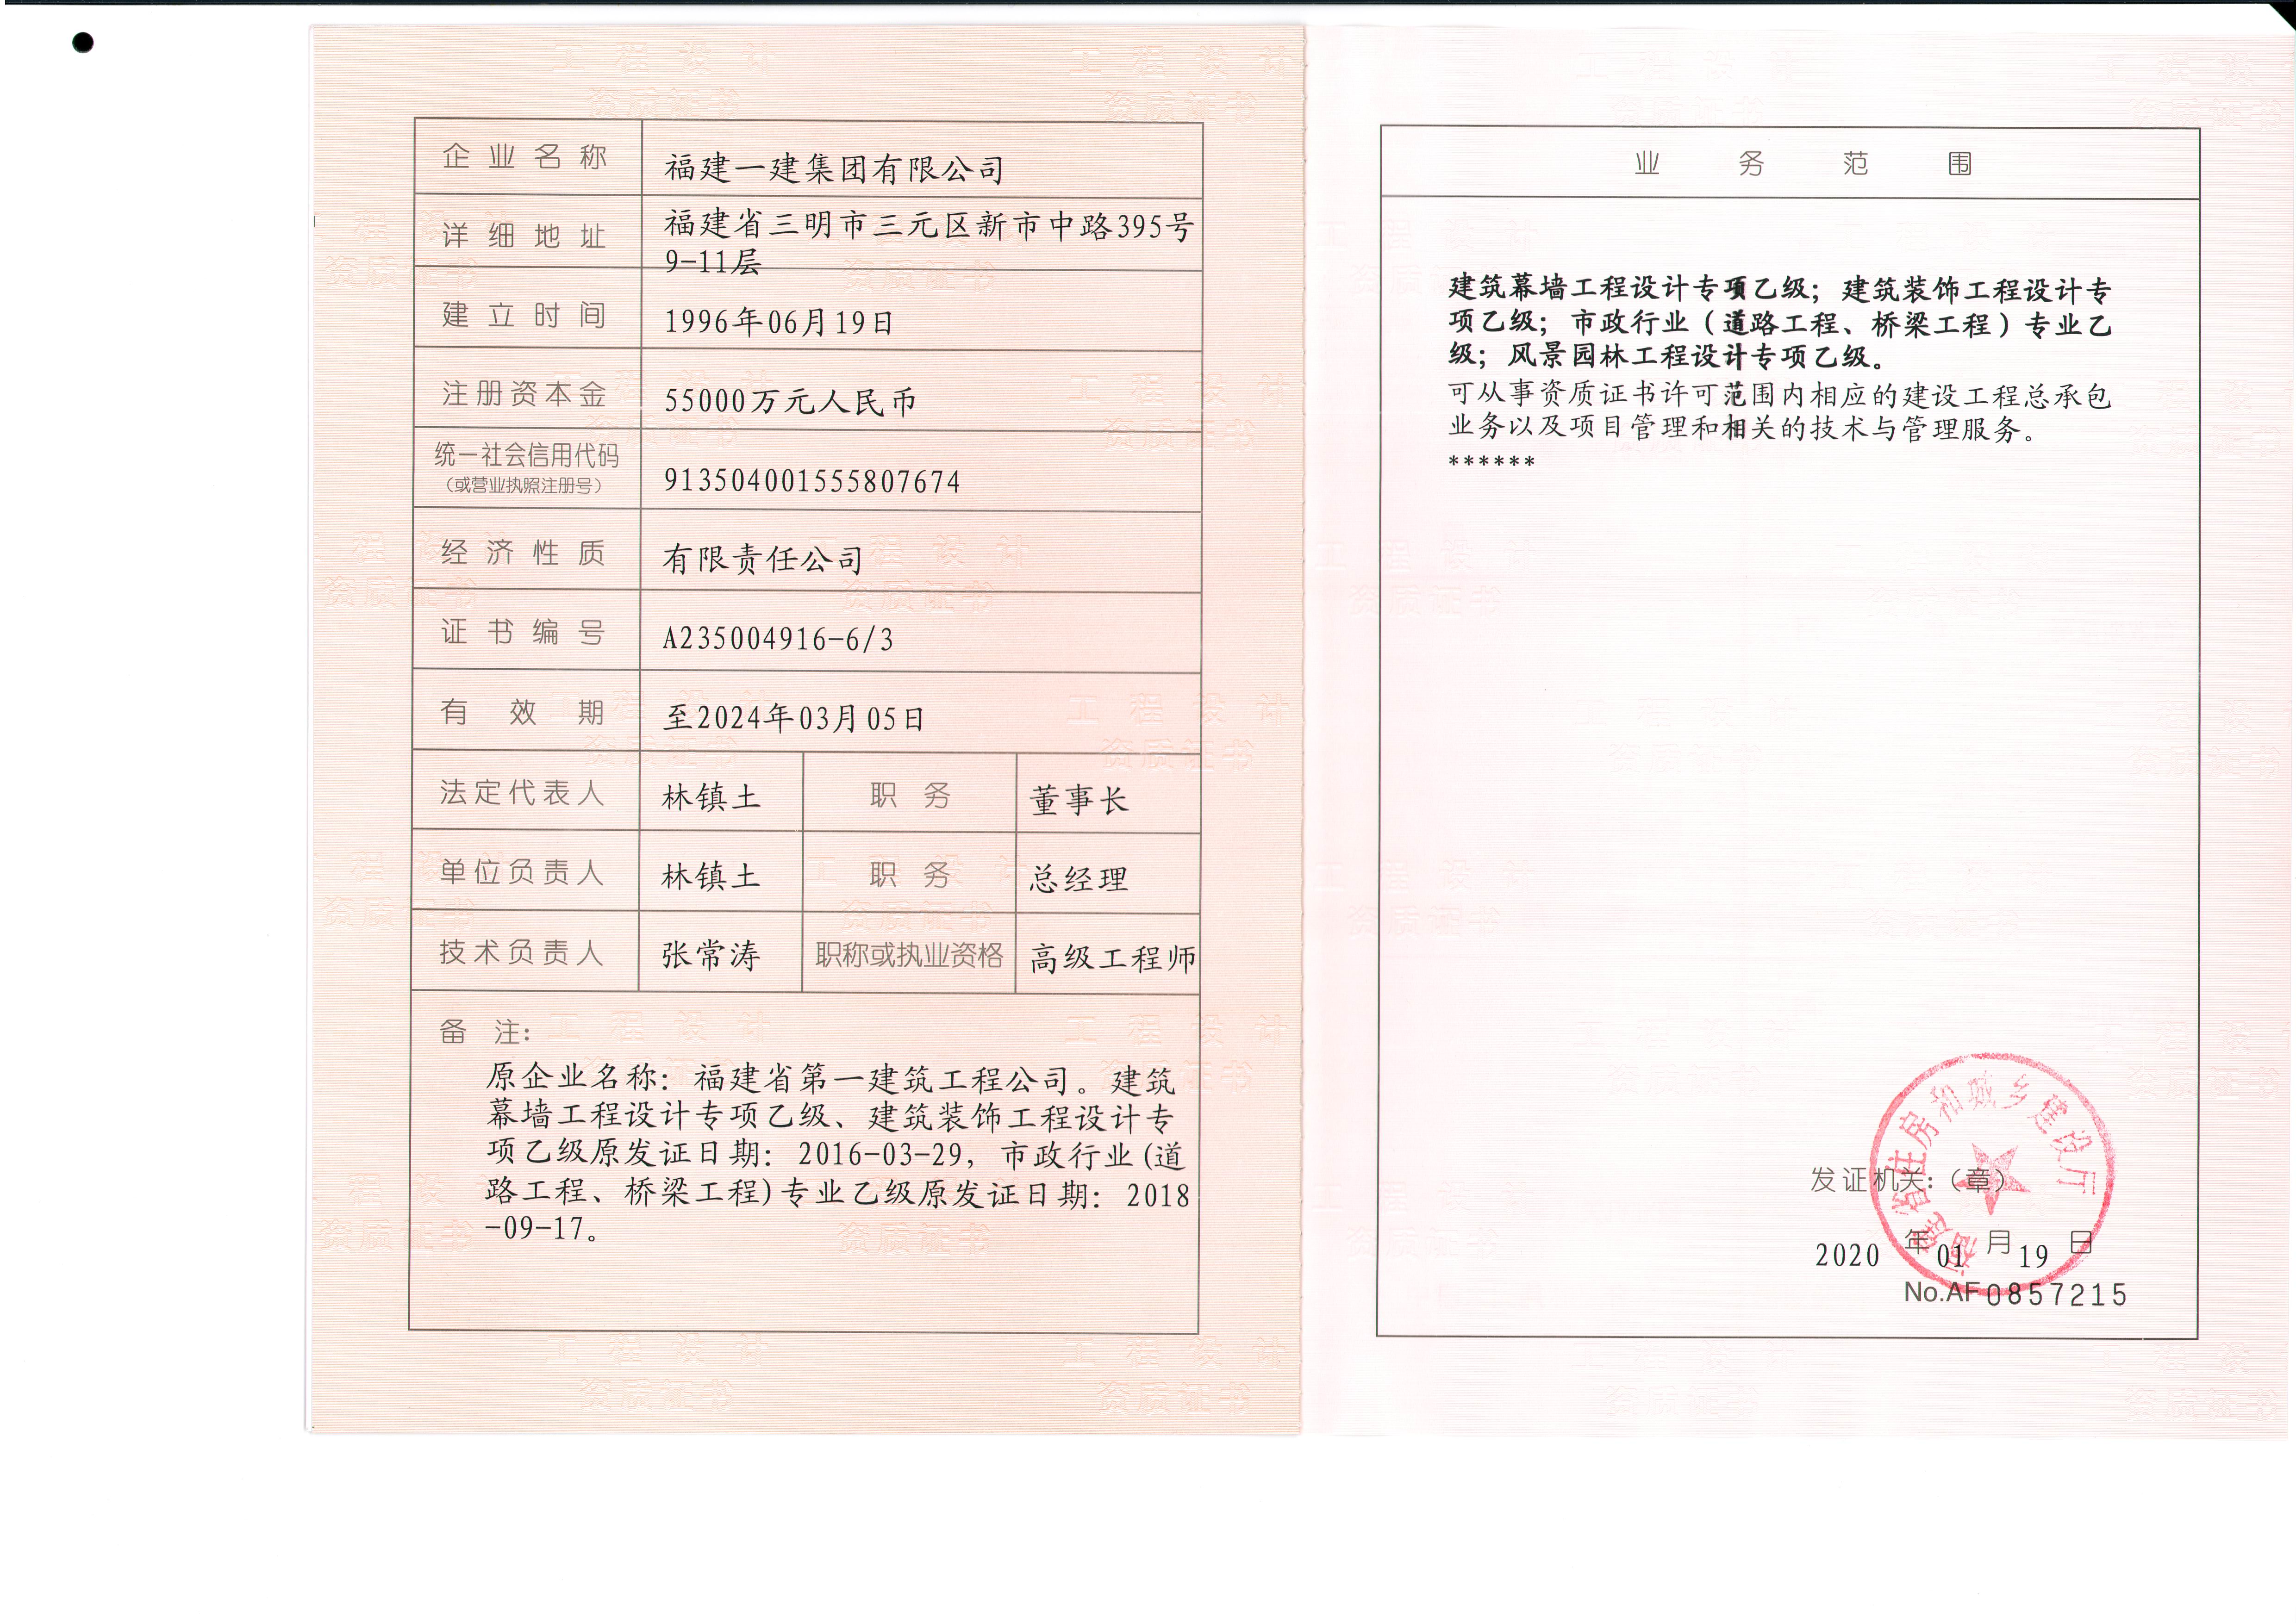 企业名称 福建一建集团有限公司
详细地址 福建省三明市三元区新市中路395号
9-11层
建立时间 1996年06月19日
注册资本金 55000万元人民币
统一社会信用代码
（或营业执照注册号） 913504001555807674
经济性质 有限责任公司
证书编号 A235004916-6/3
有效期 至2024年03月05日
法定代表人 林镇土 职务 董事长
单位负责人 林镇土 职务 总经理
技术负责人 张常涛 职称或执业资格 高级工程师
备注：
原企业名称：福建省第一建筑工程公司。建筑
幕墙工程设计专项乙级、建筑装饰工程设计专
项乙级原发证日期：2016-03-29，市政行业(道
路工程、桥梁工程)专业乙级原发证日期：2018
-09-17。
业务范围
建筑幕墙工程设计专项乙级；建筑装饰工程设计专
项乙级；市政行业（道路工程、桥梁工程）专业乙
级；风景园林工程设计专项乙级。
可从事资质证书许可范围内相应的建设工程总承包
业务以及项目管理和相关的技术与管理服务。
******
福建省住房和城乡建设厅
发证机关：（章）
2020年01月19日
No.AF0857215
工程设计
资质证书